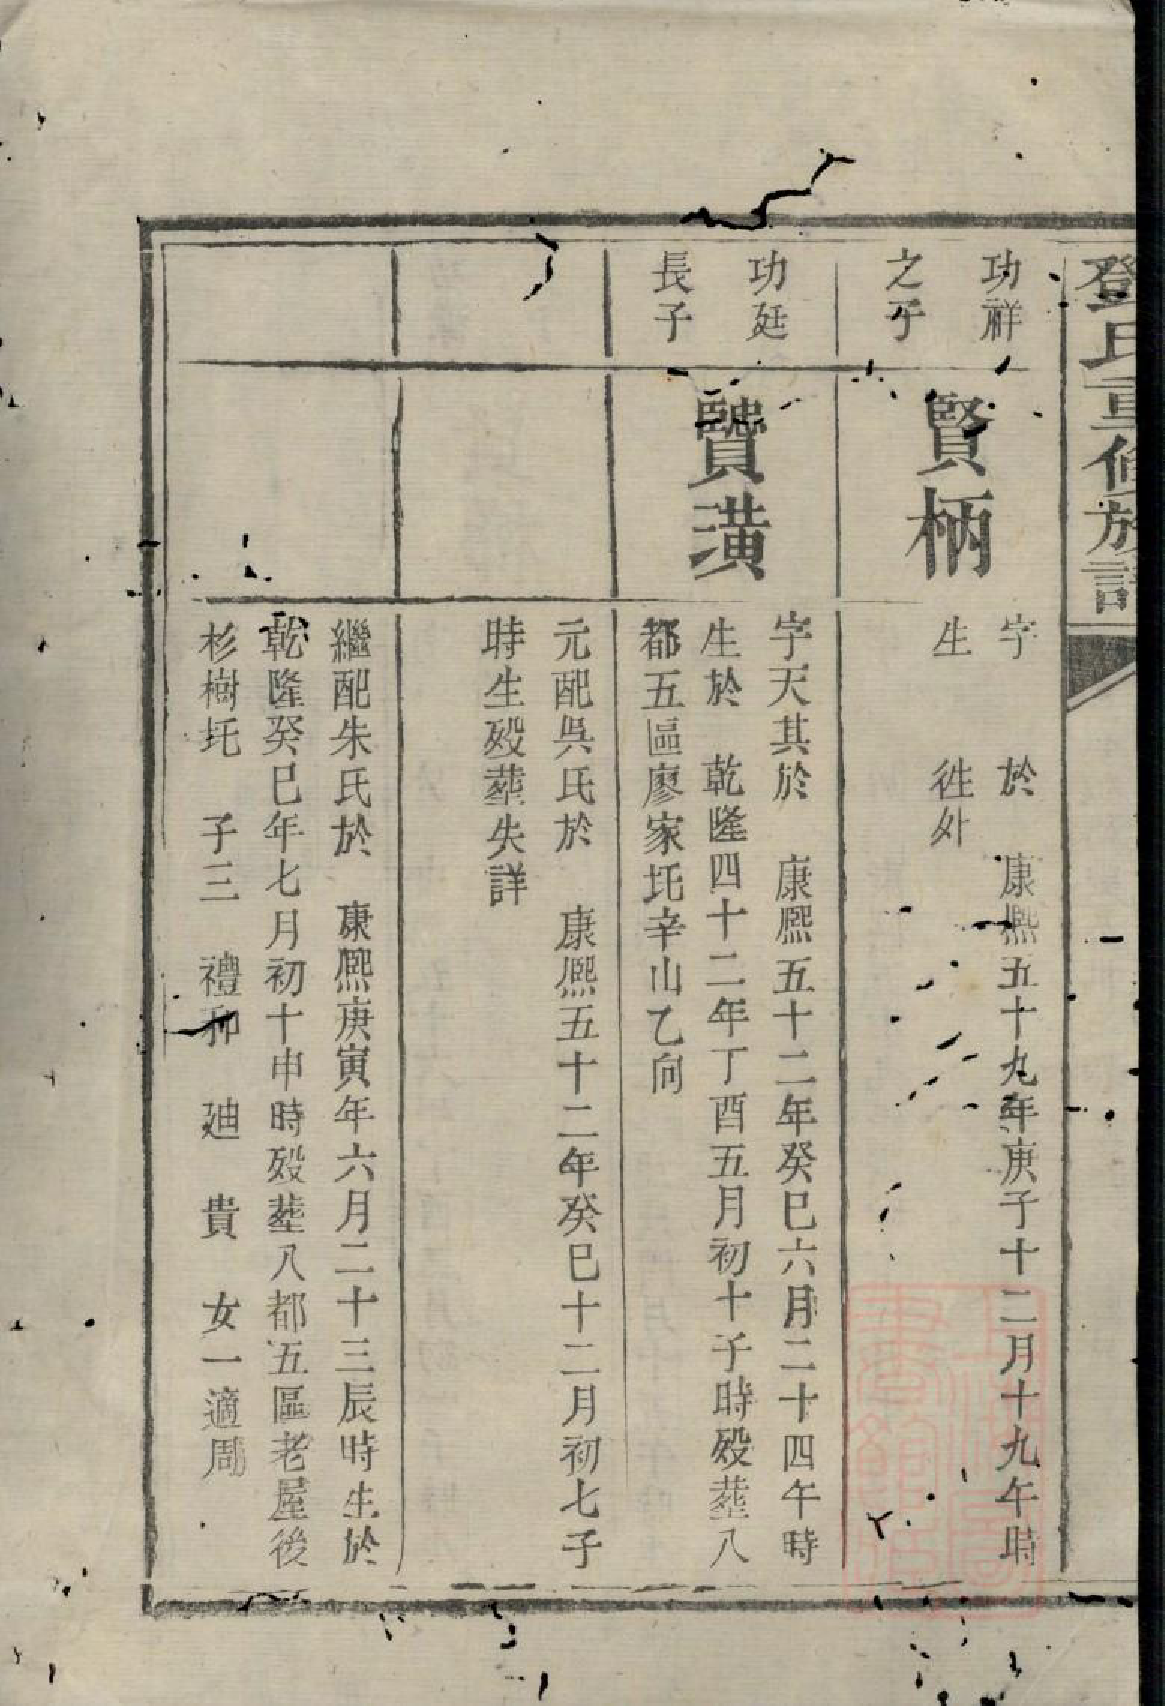 鄧氏重修族譜
功祥
之子
賢柄
字 於 康熙五十九年庚子十二月十九午時
生 徃外
功廷
長子
賢潢
字天其於 康熙五十二年癸巳六月二十四午時
生於 乾隆四十二年丁酉五月初十子時殁塟八
都五區廖家圫辛山乙向
元配吳氏於 康熙五十二年癸巳十二月初七子
時生殁塟失詳
繼配朱氏於 康熙庚寅年六月二十三辰時生於
乾隆癸巳年七月初十申時殁塟八都五區老屋後
杉樹圫 子三 禮 廸 貴 女一適周